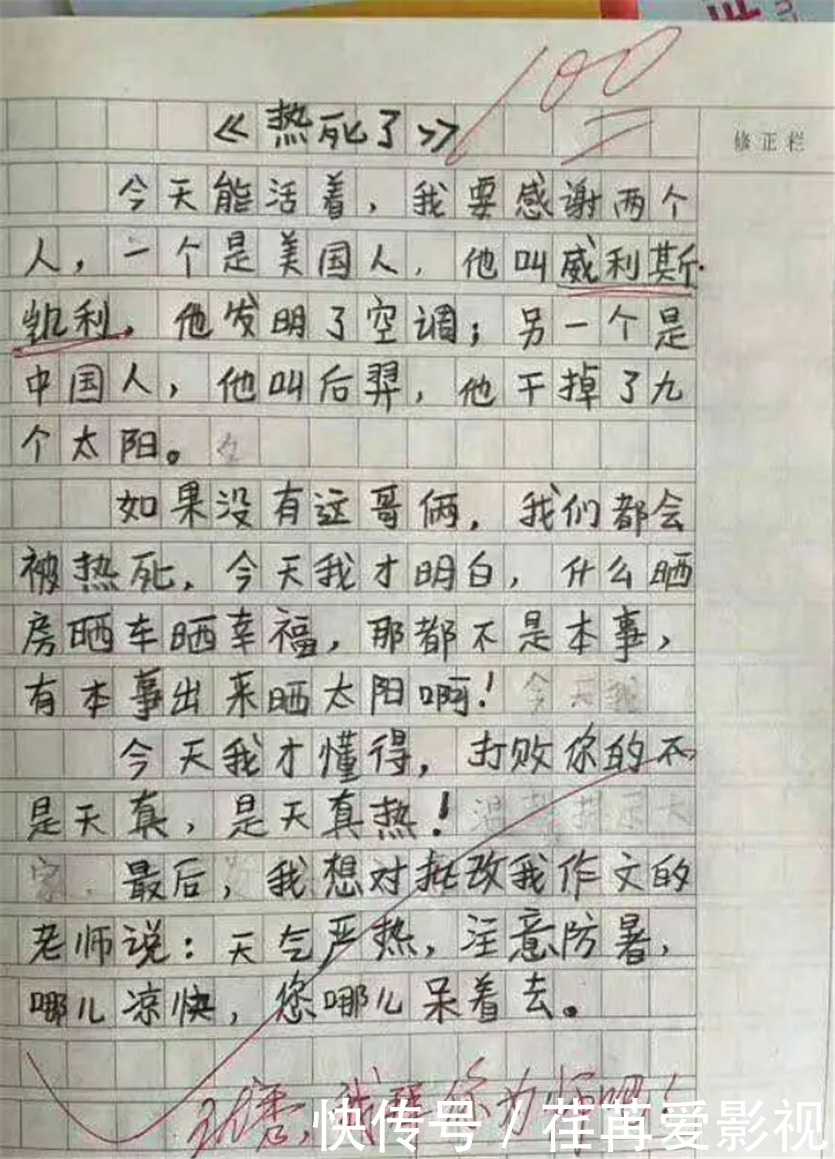 100
《热死了》
修正栏
今天能活着，我要感谢两个
人，一个是美国人，他叫威利斯·
凯利，他发明了空调；另一个是
中国人，他叫后羿，他干掉了九
个太阳。
如果没有这哥俩，我们都会
被热死，今天我才明白，什么晒
房晒车晒幸福，那都不是本事，
有本事出来晒太阳啊！今天我
今天我才懂得，打败你的不
是天真，是天真热！温馨提示大
家，最后，我想对批改我作文的
老师说：天气严热，注意防暑，
哪儿凉快，您哪儿呆着去。
快传号 / 荏苒爱影视